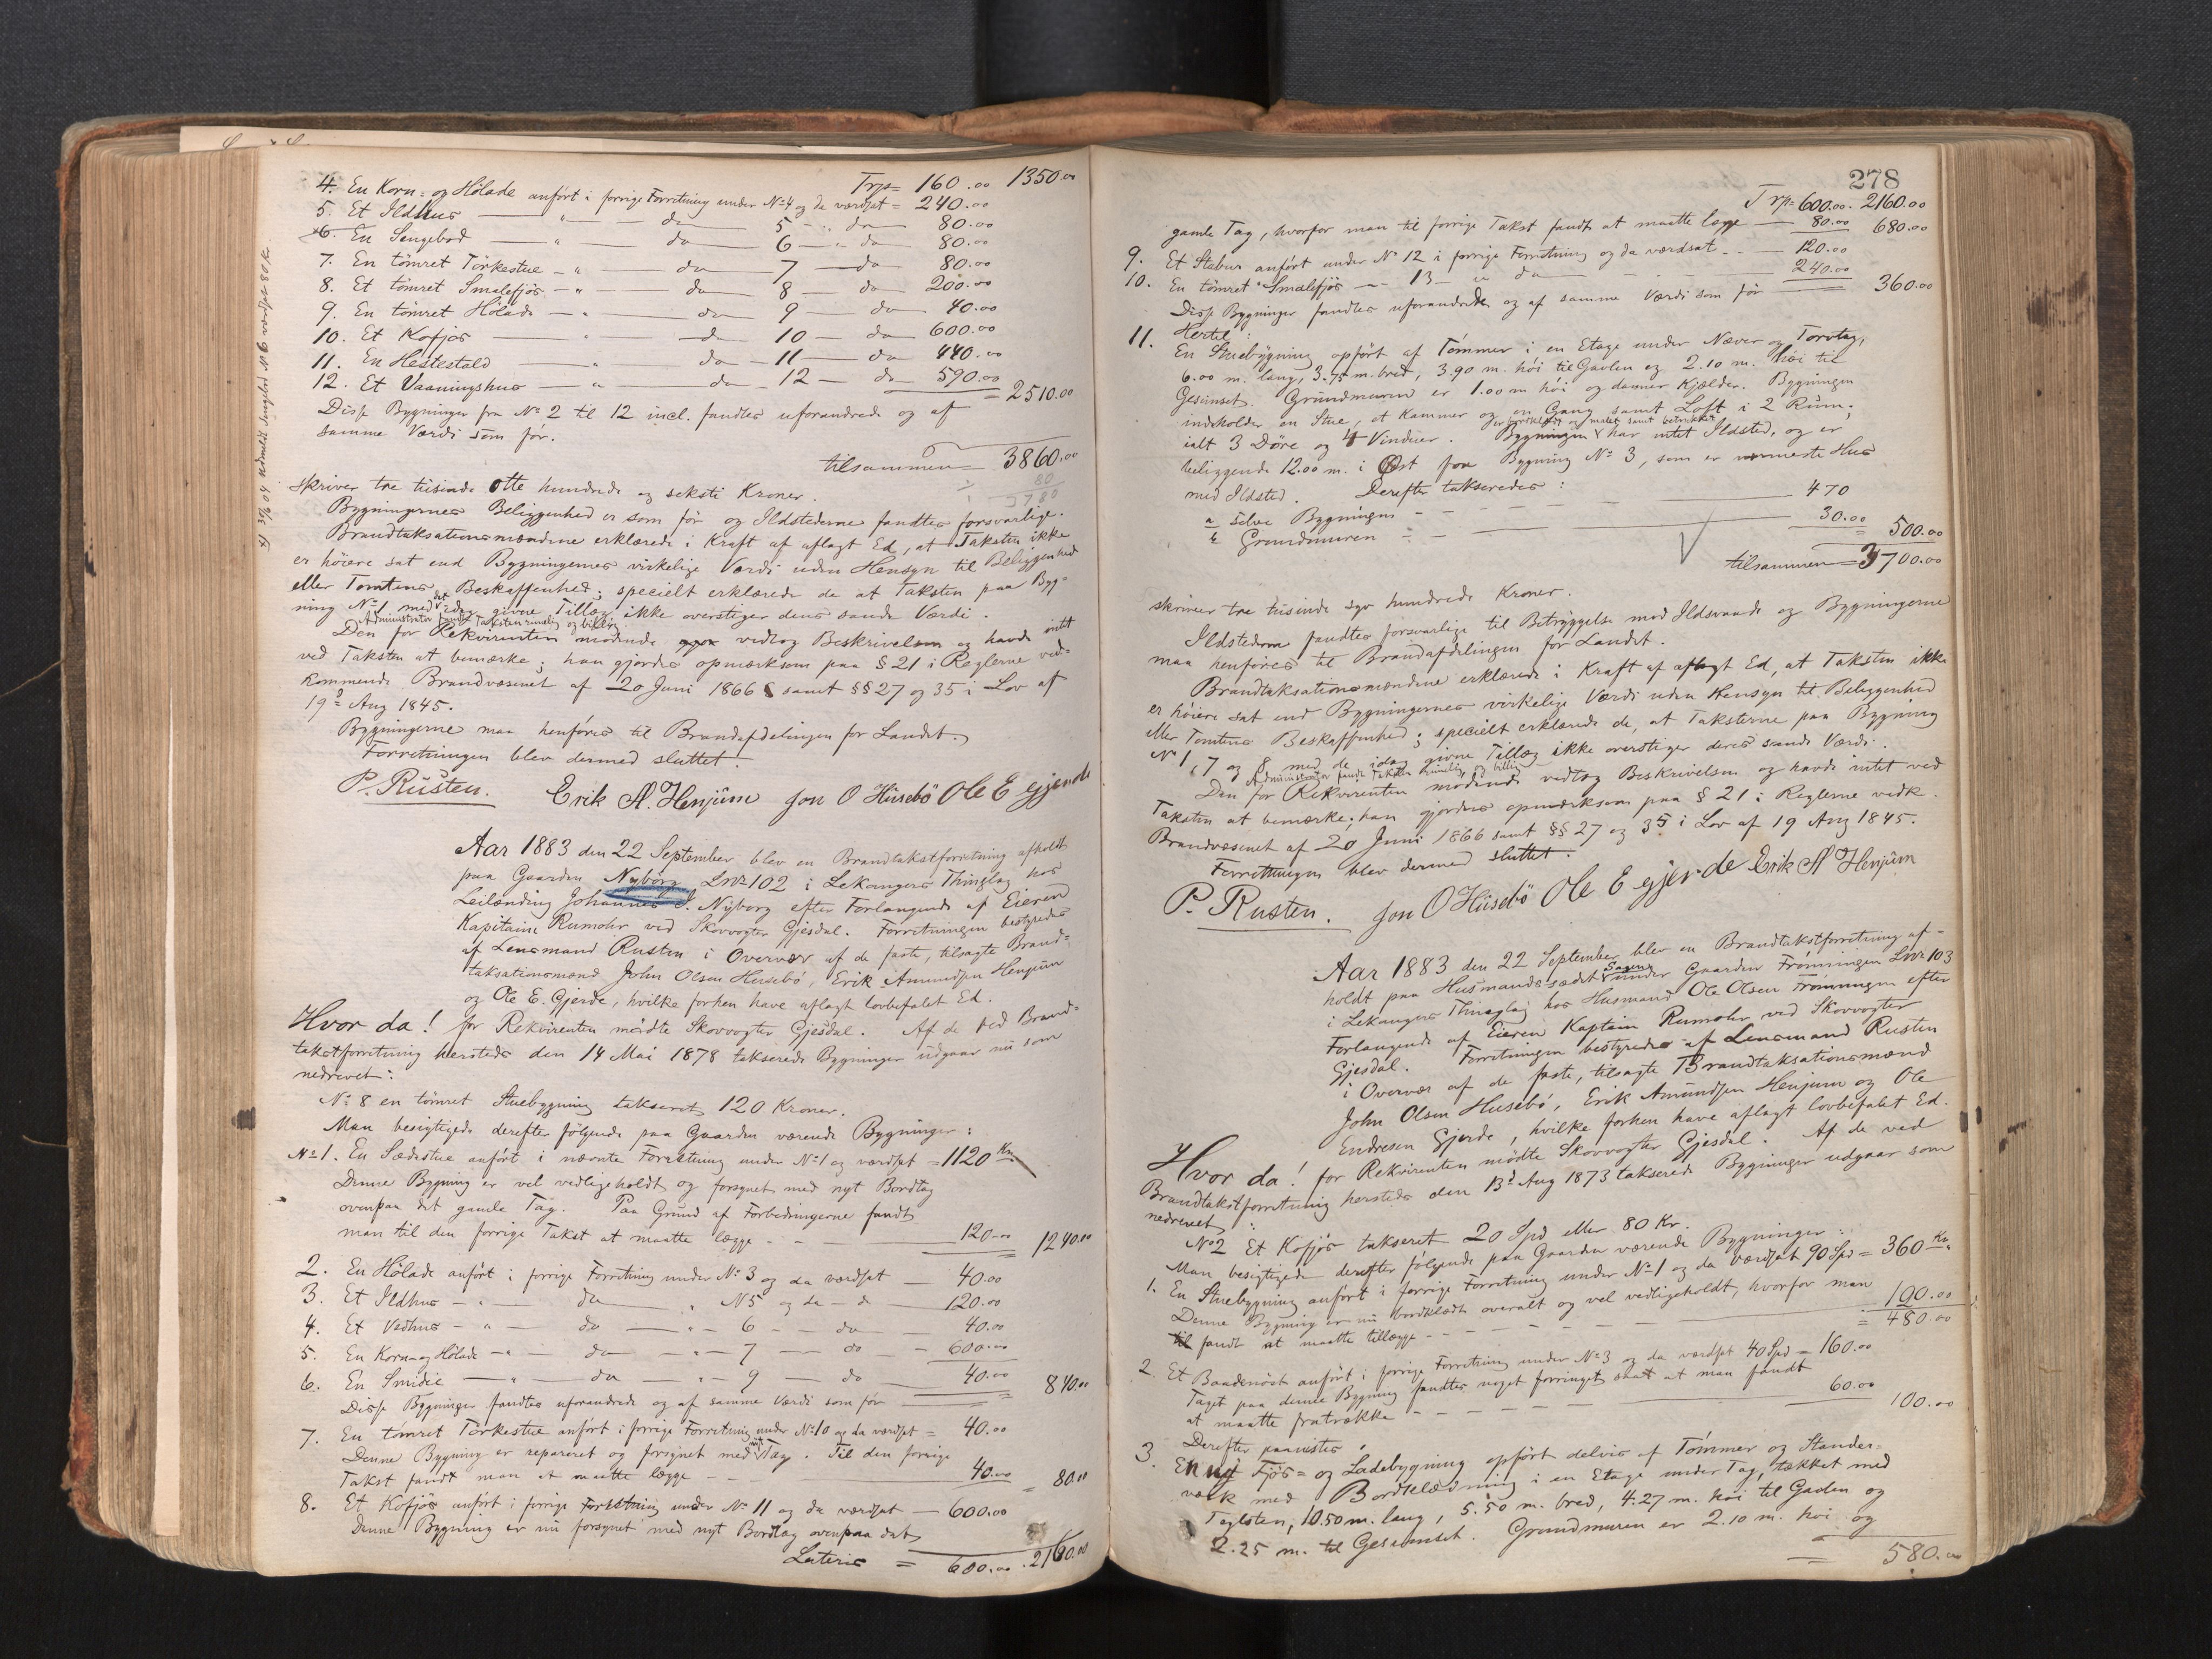 Trp = 160.00 1350.00
4. En Korn- og Hölade anfört i forrige Forretning under No 4 og da værdsat = 240.00
5. Et Ildhus — " — da — 5 — " — do — 80.00
*6. En Sengebod — " — da — 6 — " — do 80.00
7. En tömret Törkestue — " — da — 7 — do — 80.00
8. Et tömret Smalefjös — " — da — 8 — do — 200.00
9. En tömret Hölade — " — da — 9 — do — 40.00
10. Et Kofjös — " — da — 10 — do — 600.00
11. En Hestestald — " — da — 11 — do — 440.00
12. Et Vaaningshus — " — da — 12 — do — 590.00 = 2510.00
Disse Bygninger fra No 2 til 12 incl. fandtes uforandrede og af
samme Værdi som för.
tilsammen = 3860.00
÷ 80
3780
skriver tre tusinde otte hundrede og seksti Kroner.
Bygningernes Beliggenhed er som för og Ildstederne fandtes forsvarlige.
Brandtaksationsmændene erklærede i Kraft af aflagt Ed, at Taksten ikke
er höiere sat end Bygningernes virkelige Værdi uden Hensyn til Beliggenhed
eller Tomtens Beskaffenhed; specielt erklærede de at Taksten paa Byg-
ning No 1 med det idag givne Tillæg ikke overstiger dens sande Værdi.
Administrator fandt Taksten rimelig og billig.
Den for Rekvirenten mödende vedtog Beskrivelsen og havde intet
ved Taksten at bemærke; han gjordes opmærksom paa § 21 i Reglerne ved-
kommende Brandvæsenet af 20 Juni 1866 samt §§ 27 og 35 i Lov af
19de Aug 1845.
Bygningerne maa henföres til Brandafdelingen for Landet.
Forretningen blev dermed sluttet.
P. Rusten. Erik A. Henjum Jon O Husebö Ole E gjerde
Aar 1883 den 22 September blev en Brandtakstforretning afholdt
paa Gaarden Nyborg Lnr 102 i Lekangers Thinglag hos
Leilænding Johannes J. Nyborg efter Forlangende af Eieren
Kapitaine Rumohr ved Skovvogter Gjesdal. Forretningen bestyredes
af Lensmand Rusten i Overvær af de faste, tilsagte Brand-
taksationsmænd John Olsen Husebö, Erik Amundsen Henjum
og Ole E. Gjerde, hvilke forhen have aflagt lovbefalet Ed.
Hvor da! for Rekvirenten mödte Skovvogter Gjesdal. Af de ved Brand-
takstforretning hersteds den 14 Mai 1878 takserede Bygninger udgaar nu som
nedrevet:
No 8 en tömret Stuebygning takseret 120 Kroner.
Man besigtigede derefter fölgende paa Gaarden værende Bygninger:
No 1. En Sædestue anfört i nævnte Forretning under No 1 og værdsat = 1120 Kr.
Denne Bygning er vel vedligeholdt og forsynet med nyt Bordtag
ovenpaa det gamle Tag. Paa Grund af Forbedringerne fandt
man til den forrige Takst at maatte lægge — 120.00 1240.00
2. En Hölade anfört i forrige Forretning under No 3 og da værdsat — 40.00
3. Et Ildhus — " — da " No 5 og da — d — 120.00
4. Et Vedhus — " — do — " — 6 — do 40.00
5. En Korn- og Hölade — " — da — " — 7 — do — 600.00
6. En Smidie — " — da — " — 9 — do 40.00 840.00
Disse Bygninger fandtes uforandrede og af samme Værdi som för
7. En tömret Törkestue anfört i forrige Forretning under No 10 og da værdsat = 40.00
Denne Bygning er repareret og forsynet med nyt Tag. Til den forrige
Takst fandt man at maatte lægge — 40.00 = 80.00
8. Et Kofjös anfört i forrige Forretning under No 11 og da værdsat — 600.00
Denne Bygning er nu forsynet med nyt Bordtag ovenpaa det
Lateris = 600.00 2160.00
*) 31/6 04 udmeldt Sengebod No 6 værdsat 80 Kr.
278
Trp = 600.00. 2160.00
gamle Tag, hvorfor man til forrige Takst fandt at maatte lægge — 80.00 680.00
9. Et Stabur anfört under No 12 i forrige Forretning og da værdsat — 120.00
10. En tömret Smalefjös — 13 — " da — 240.00 360.00
Disse Bygninger fandtes uforandrede og af samme Værdi som för
Hertil:
11. En Stuebygning opfört af Tömmer i en Etage under Næver og Torvtag,
6.00 m. lang, 3.75 m. bred, 3.90 m. höi til Gavlen og 2.10 m. höi til
Gesimset. Grundmuren er 1.00 m höi og danner Kjælder. Bygningen
indeholder en Stue, et Kammer og en Gang samt Loft i 2 Rum;
er bordklædt og malet samt betrukket
ialt 3 Döre og 4 Vinduer. Bygningen har intet Ildsted, og er
beliggende 12.00 m. i Öst fra Bygning No 3, som er nærmeste Hus
med Ildsted. Derefter takseredes:
a Selve Bygningen — 470
b Grundmuren — 30.00 500.00
tilsammen = 3700.00
skriver tre tusinde syv hundrede Kroner.
Ildstederne fandtes forsvarlige til Betryggelse mod Ildsvaade og Bygningerne
maa henföres til Brandafdelingen for Landet.
Brandtaksationsmændene erklærede i Kraft af aflagt Ed, at Taksten ikke
er höiere sat end Bygningernes virkelige Værdi uden Hensyn til Beliggenhed
eller Tomtens Beskaffenhed; specielt erklærede de, at Taksterne paa Bygning
No 1, 7 og 8 med de idag givne Tillæg ikke overstiger deres sande Værdi.
Administrator fandt Taksten rimelig og billig
Den for Rekvirenten mödende vedtog Beskrivelsen og havde intet ved
Taksten at bemærke; han gjordes opmærksom paa § 21 i Reglerne vedk.
Brandvæsenet af 20 Juni 1866 samt §§ 27 og 35 i Lov af 19 Aug 1845.
Forretningen blev dermed sluttet.
P. Rusten. Jon O Husebö Ole E gjerde Erik A Henjum
Aar 1883 den 22 September blev en Brandtakstforretning af-
holdt paa Husmandssædet under Gaarden Frönningen Lnr 103
i Lekangers Thinglag hos Husmand Ole Olsen Frönningen efter
Forlangende af Eieren Kaptein Rumohr ved Skovvogter
Gjesdal. Forretningen bestyredes af Lensmand Rusten
i Overvær af de faste, tilsagte Brandtaksationsmænd
John Olsen Husebö, Erik Amundsen Henjum og Ole
Endresen Gjerde, hvilke forhen have aflagt lovbefalet Ed.
Hvor da! for Rekvirenten mödte Skovvogter Gjesdal. Af de ved
Brandtakstforretning hersteds den 13de Aug 1873 takserede Bygninger udgaar som
nedrevet:
No 2 Et Kofjös takseret 20 Spd eller 80 Kr.
Man besigtigede derefter fölgende paa Gaarden værende Bygninger:
1. En Stuebygning anfört i forrige Forretning under No 1 og da værdsat 90 Spd = 360 Kr.
Denne Bygning er nu bordklædt overalt og vel vedligeholdt, hvorfor man
til fandt at maatte tillægge — 120.00
= 480.00
2. Et Baadenöst anfört i forrige Forretning under No 3 og da værdsat 40 Spd = 160.00
Taget paa denne Bygning fandtes noget forringet saat at man fandt
at maatte fratrække — 60.00 100.00
Derefter paavistes:
3. En ny Fjös- og Ladebygning opfört delvis af Tömmer og Stander-
værk med Bordklædning i en Etage under Tag, tækket med
Teglsten, 10.50 m. lang, 5.50 m. bred, 4.27 m. höi til Gavlen og
2.25 m. til Gesimset. Grundmuren er 2.10 m. höi og
= 580.00